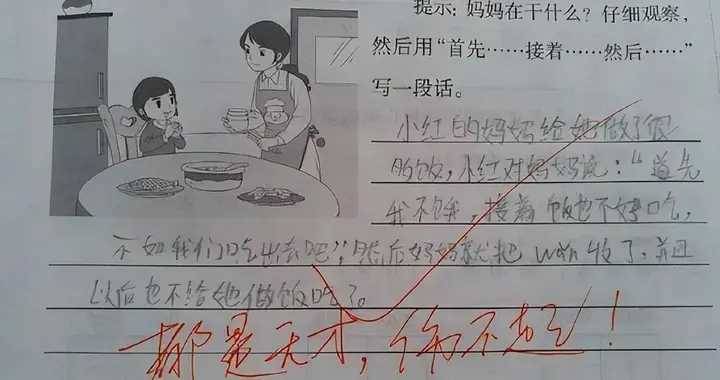 提示：妈妈在干什么？仔细观察，
然后用“首先……接着……然后……”
写一段话。
小红的妈妈给她做了很
多饭，小红对妈妈说：“首先
我不饿，接着饭也不好吃，
不如我们吃出去吧”；然后妈妈就把wǎn收了，并且
以后也不给她做饭吃了。
都是天才，伤不起！